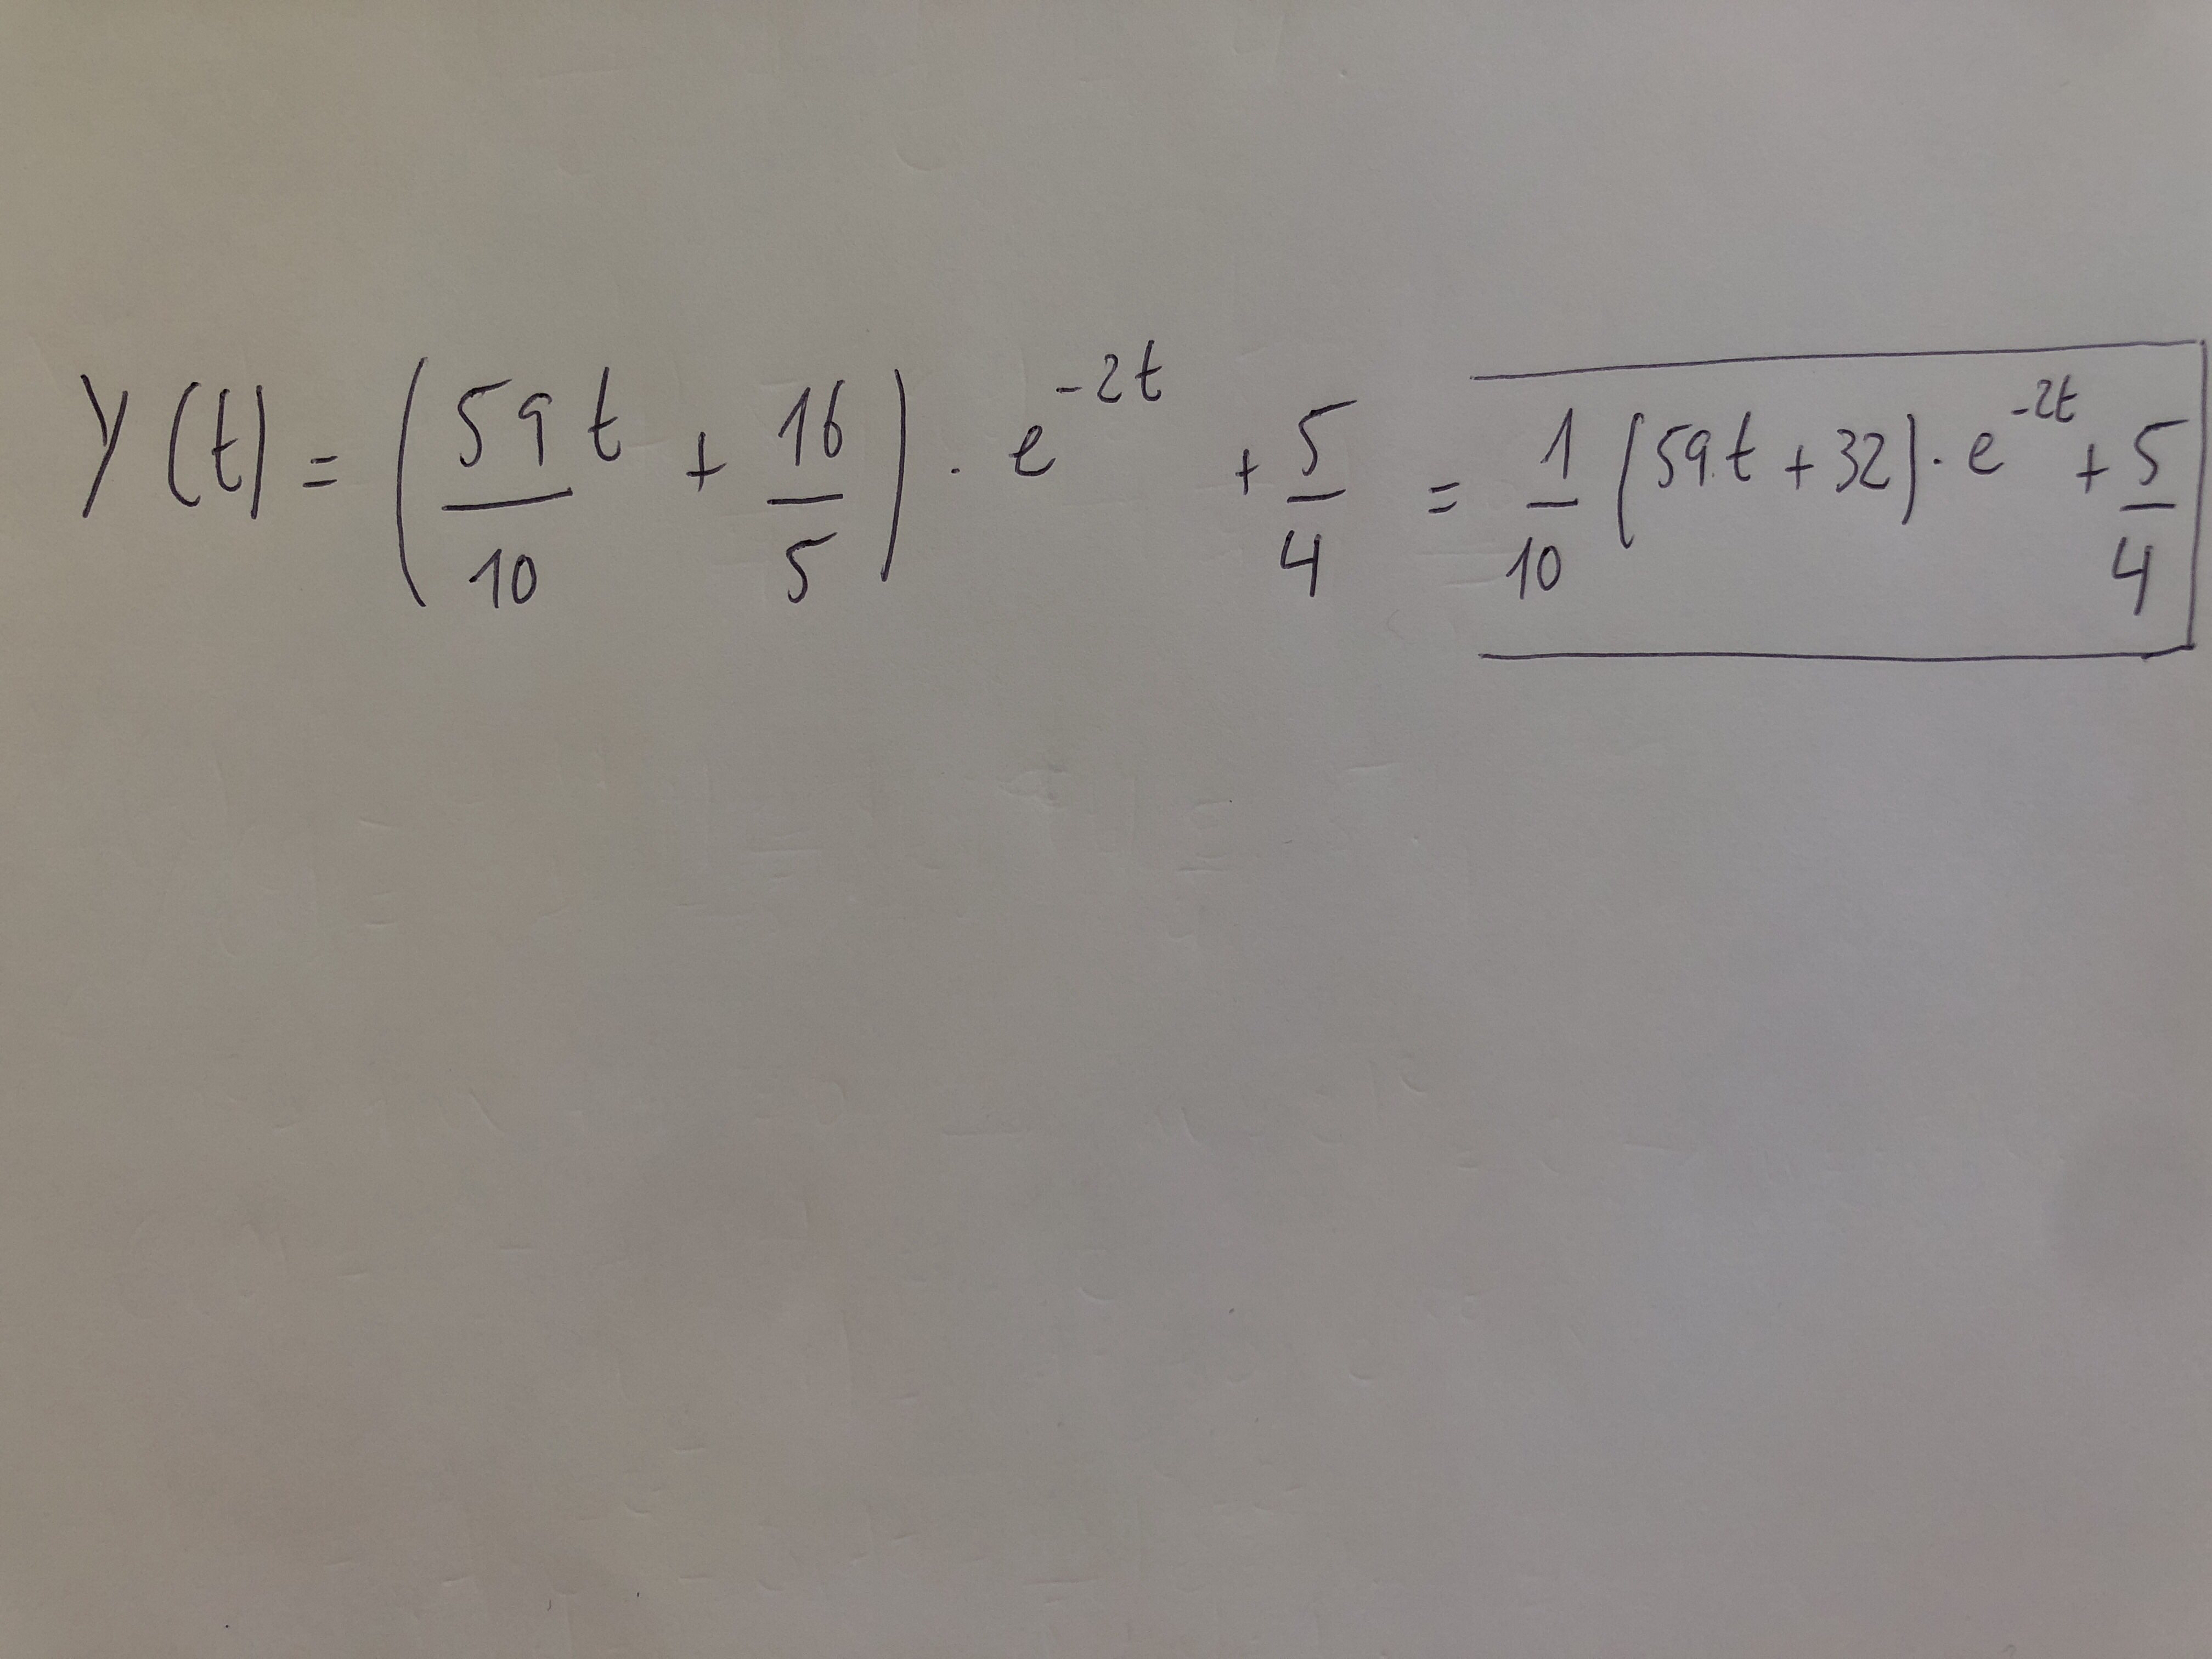 y(t) = (59t/10 + 16/5) · e^{-2t} + 5/4 = 1/10 (59t + 32) · e^{-2t} + 5/4